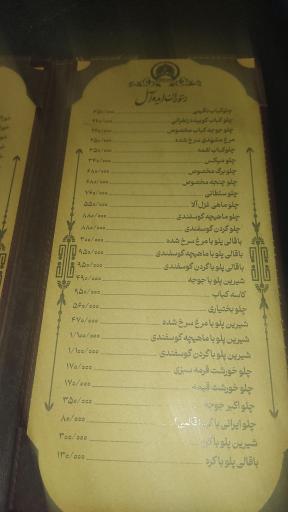 رستوران اردیبه آل
چلوکباب نگینی ۶۵۰/۰۰۰
چلو کباب کوبیده زعفرانی ۴۶۰/۰۰۰
چلو جوجه کباب مخصوص ۴۶۰/۰۰۰
مرغ مشهدی سرخ شده ۴۵۰/۰۰۰
چلوکباب لقمه ۳۵۰/۰۰۰
چلو میکس ۳۴۰/۰۰۰
چلو برگ مخصوص ۶۸۰/۰۰۰
چلو چنجه مخصوص ۶۸۰/۰۰۰
چلو سلطانی ۷۶۰/۰۰۰
چلو ماهی غزل آلا ۵۵۰/۰۰۰
چلو ماهیچه گوسفندی ۸۸۰/۰۰۰
چلو گردن گوسفندی ۸۸۰/۰۰۰
باقالی پلو با مرغ سرخ شده ۳۰۰/۰۰۰
باقالی پلو با ماهیچه گوسفندی ۹۵۰/۰۰۰
باقالی پلو با گردن گوسفندی ۹۵۰/۰۰۰
شیرین پلو با جوجه ۴۹۰/۰۰۰
کاسه کباب ۹۵۰/۰۰۰
چلو بختیاری ۵۶۰/۰۰۰
شیرین پلو با مرغ سرخ شده ۴۷۰/۰۰۰
شیرین پلو با ماهیچه گوسفندی ۱/۱۰۰/۰۰۰
شیرین پلو با گردن گوسفندی ۱/۱۰۰/۰۰۰
چلو خورشت قرمه سبزی ۱۷۰/۰۰۰
چلو خورشت قیمه ۱۷۰/۰۰۰
چلو اکبر جوجه ۳۵۰/۰۰۰
چلو ایرانی با کره ۸۰/۰۰۰
شیرین پلو با کره ۳۰۰/۰۰۰
باقالی پلو با کره ۱۳۰/۰۰۰